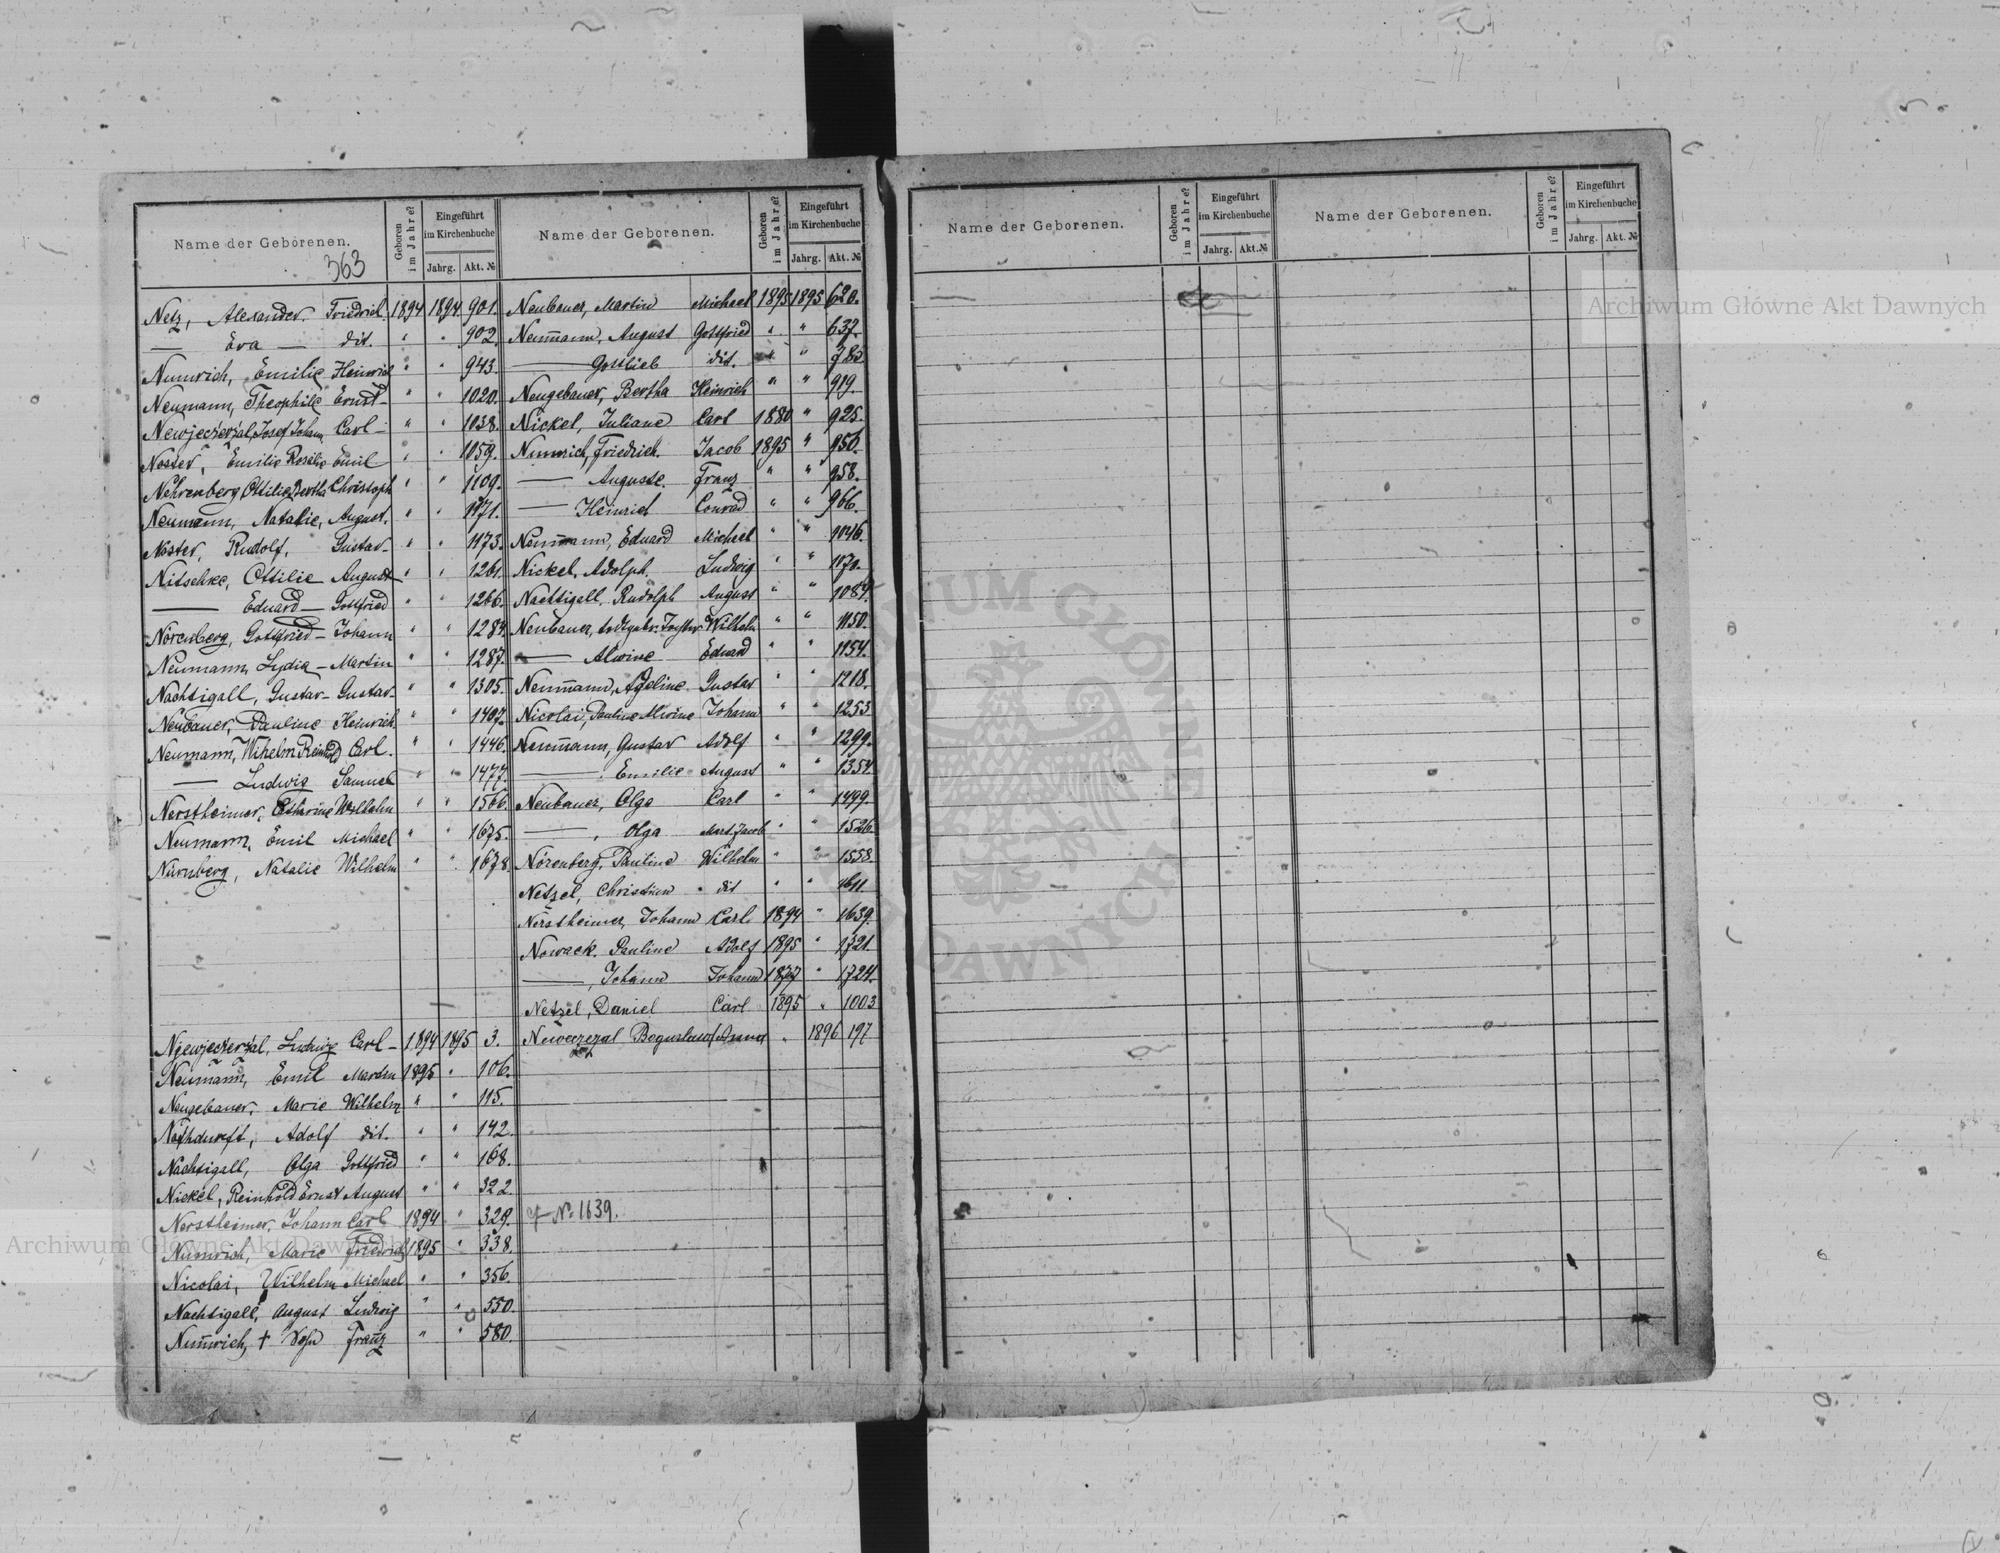 Name der Geborenen.
Geboren im Jahre?
Eingeführt im Kirchenbuche
Jahrg. Akt. №
363
Netz, Alexander. Friedrich. 1894 1894 901.
— Eva — dit. " " 902.
Numrich, Emilie Heinrich " " 943.
Neumann, Theophile Ernst " " 1020.
Carl " " 1038.
Nester, Emilie Rosalie Emil " " 1059.
Nehrenberg Ottilie Bertha Christoph " " 1109.
Neumann, Natalie, August. " " 1171.
Nester, Rudolf, Gustav " " 1173.
Nitschke, Ottilie August " " 1261.
— Eduard — Gottfried " " 1266.
Nörenberg, Gottfried — Johann " " 1284.
Neumann, Lydia — Martin " " 1287.
Nachtigall, Gustav — Gustav " " 1305.
Neubauer, Pauline Heinrich " " 1407.
Neumann, Wilhelm Reinhold Carl. " " 1446.
— Ludwig Samuel " " 1477.
Nerstheimer, Catharine Wilhelm " " 1566.
Neumann, Emil Michael " " 1675.
Nürnberg, Natalie Wilhelm " " 1678.
Ludwig Carl — 1894 1895 3.
Neumann, Emil Martin 1895 " 106.
Neugebauer, Marie Wilhelm " " 115.
Nothdurft, Adolf dit. " " 142.
Nachtigall, Olga Gottfried " " 168.
Nickel, Reinhold Ernst August " " 322.
Nerstheimer, Johann Carl 1894 " 329.
Numrich, Marie Friedrich 1895 " 338.
Nicolai, Wilhelm Michael " " 356.
Nachtigall, August Ludwig " " 550.
Numrich, † Sohn Franz " " 580.
Name der Geborenen.
Geboren im Jahre?
Eingeführt im Kirchenbuche
Jahrg. Akt. №
Neubauer, Martin Michael 1895 1895 620.
Neumann, August Gottfried " " 637.
— Gottlieb dit. " " 785
Neugebauer, Bertha Heinrich " " 919.
Nickel, Juliane Carl 1880 " 925.
Numrich, Friedrich. Jacob 1895 " 956.
— Auguste. Franz " " 958.
— Heinrich Conrad " " 966.
Neumann, Eduard Michael " " 1046.
Nickel, Adolph. Ludwig " " 1170.
Nachtigall, Rudolph August " " 1089.
Neubauer, Wilhelm " " 1150.
— Alwine Eduard " " 1154.
Neumann, Adeline Gustav " " 1218.
Nicolai, Pauline Alwine Johann " " 1253
Neumann, Gustav Adolf " " 1299.
— Emilie August " " 1354.
Neubauer, Olga Carl " " 1499.
—, Olga Mart. Jacob " " 1526.
Nörenberg, Pauline Wilhelm " " 1558.
Netzel, Christian dit " " 1611.
Nerstheimer, Johann Carl 1894 " 1639.
Nowack. Pauline Adolf 1895 " 1721.
—, Johann Johann 1877 " 1724.
Netzel, Daniel Carl 1895 " 1003
Boguslaus " 1896 197
№ 1639.
Name der Geborenen.
Geboren im Jahre?
Eingeführt im Kirchenbuche
Jahrg. Akt. №
Name der Geborenen.
Geboren im Jahre?
Eingeführt im Kirchenbuche
Jahrg. Akt. №
Archiwum Główne Akt Dawnych
Archiwum Główne Akt Dawnych